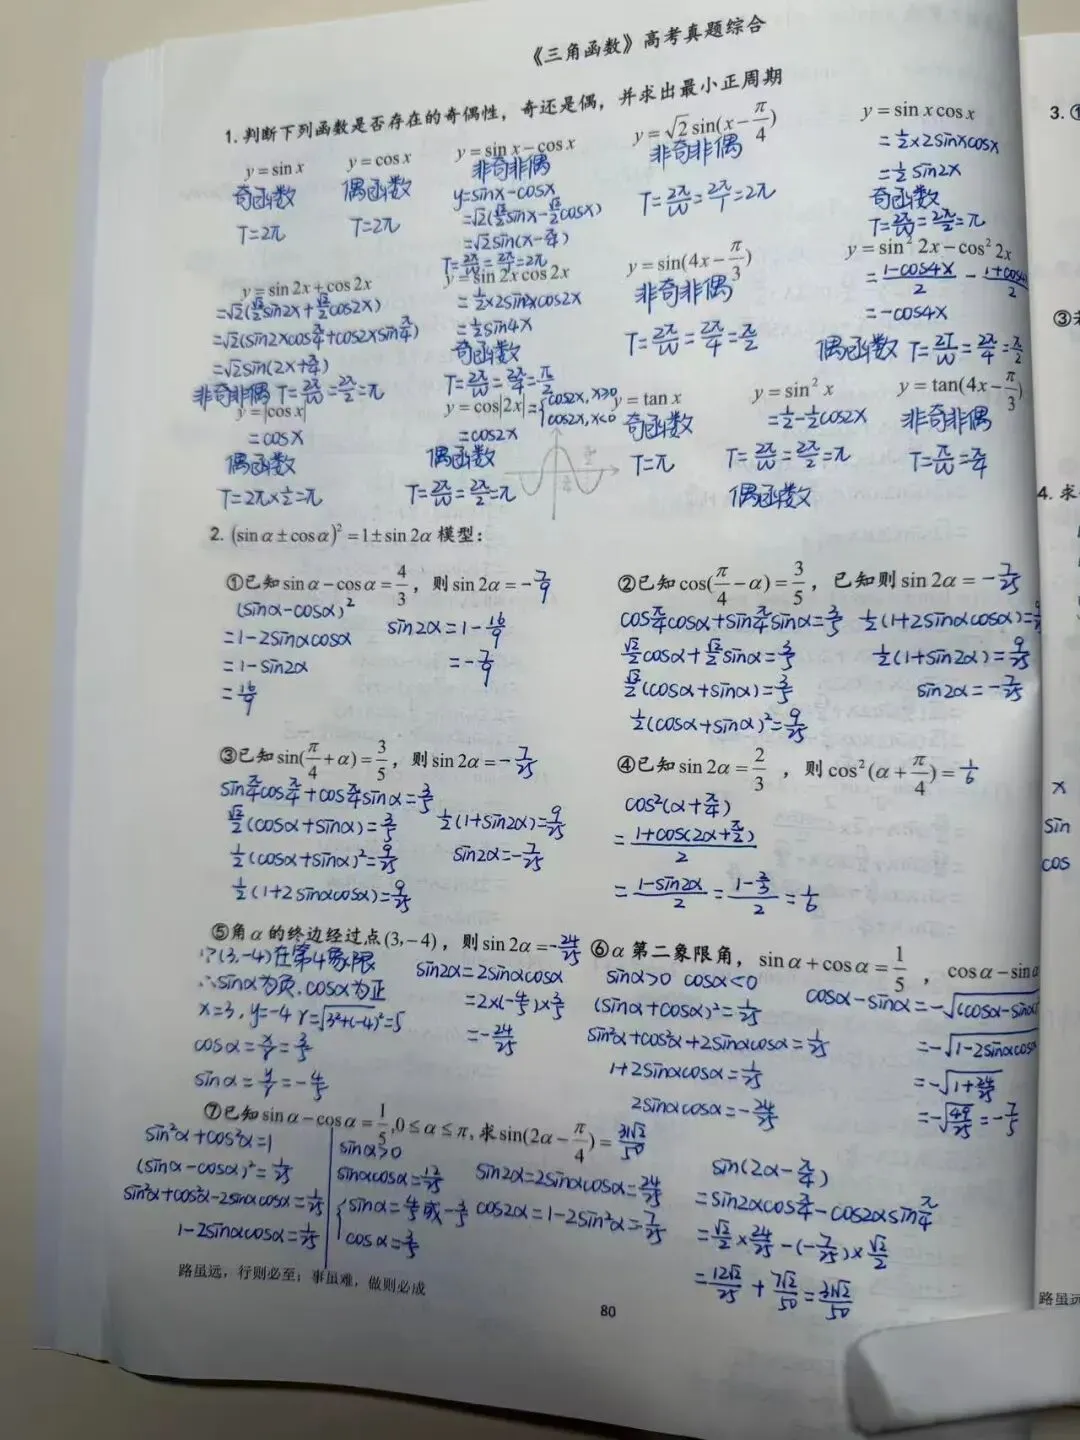 《三角函数》高考真题综合
1.判断下列函数是否存在的奇偶性，奇还是偶，并求出最小正周期
y=sin x
奇函数
T=2π
y=cos x
偶函数
T=2π
y=sin x-cos x
非奇非偶
y=sinx-cosx
=√2(√2/2 sinx-√2/2 cosx)
=√2sin(x-π/4)
T=2π/ω=2π/1=2π
y=√2 sin(x-π/4)
非奇非偶
T=2π/ω=2π/1=2π
y=sin x cos x
=1/2×2sinxcosx
=1/2 sin2x
奇函数
T=2π/ω=2π/2=π
y=sin 2x+cos 2x
=√2(√2/2 sin2x+√2/2 cos2x)
=√2(sin2xcosπ/4+cos2xsinπ/4)
=√2sin(2x+π/4)
非奇非偶 T=2π/ω=2π/2=π
y=sin 2x cos 2x
=1/2×2sin2xcos2x
=1/2 sin4x
奇函数
T=2π/ω=2π/4=π/2
y=sin(4x-π/3)
非奇非偶
T=2π/ω=2π/4=π/2
y=sin² 2x-cos² 2x
=(1-cos4x)/2-(1+cos4x)/2
=-cos4x
偶函数 T=2π/ω=2π/4=π/2
y=|cos x|
=cosx
偶函数
T=2π×1/2=π
y=cos|2x|={cos2x, x≥0
cos2x, x<0
=cos2x
偶函数
T=2π/ω=2π/2=π
y=tan x
奇函数
T=π
y=sin² x
=1/2-1/2cos2x
T=2π/ω=2π/2=π
偶函数
y=tan(4x-π/3)
非奇非偶
T=π/ω=π/4
2. (sin α±cos α)²=1±sin 2α 模型：
①已知 sin α-cos α=4/3，则 sin 2α=-7/9
(sinα-cosα)²
=1-2sinαcosα
=1-sin2α
=16/9
sin2α=1-16/9
=-7/9
②已知 cos(π/4-α)=3/5，已知则 sin 2α=-7/25
cosπ/4cosα+sinπ/4sinα=3/5
√2/2cosα+√2/2sinα=3/5
√2/2(cosα+sinα)=3/5
1/2(cosα+sinα)²=9/25
1/2(1+2sinαcosα)=
1/2(1+sin2α)=9/25
sin2α=-7/25
③已知 sin(π/4+α)=3/5，则 sin 2α=-7/25
sinπ/4cosπ/4+cosπ/4sinα=3/5
√2/2(cosα+sinα)=3/5
1/2(cosα+sinα)²=9/25
1/2(1+2sinαcosα)=9/25
1/2(1+sin2α)=9/25
sin2α=-7/25
④已知 sin 2α=2/3，则 cos²(α+π/4)=1/6
cos²(α+π/4)
=(1+cos(2α+π/2))/2
=(1-sin2α)/2=(1-2/3)/2=1/6
⑤角 α 的终边经过点 (3,-4)，则 sin 2α=-24/25
∵(3,-4)在第4象限
∴sinα为负，cosα为正
x=3，y=-4 r=√(3²+(-4)²)=5
cosα=x/r=3/5
sinα=y/r=-4/5
sin2α=2sinαcosα
=2×(-4/5)×3/5
=-24/25
⑥α 第二象限角，sin α+cos α=1/5，cos α-sin α
sinα>0 cosα<0
(sinα+cosα)²=1/25
sin²α+cos²α+2sinαcosα=1/25
1+2sinαcosα=1/25
2sinαcosα=-24/25
cosα-sinα=-√(cosα-sinα)
=-√(1-2sinαcosα
=-√(1+24/25)
=-√(49/25)=-7/5
⑦已知 sin α-cos α=1/5,0≤α≤π,求 sin(2α-π/4)=31√2/50
sin²α+cos²α=1
(sinα-cosα)²=1/25
sin²α+cos²α-2sinαcosα=1/25
1-2sinαcosα=1/25
sinα>0
sinαcosα=12/25
{sinα=4/5或-3/5
cosα=3/5
sin2α=2sinαcosα=24/25
cos2α=1-2sin²α=-7/25
sin(2α-π/4)
=sin2αcosπ/4-cos2αsinπ/4
=√2/2×24/25-(-7/25)×√2/2
=12√2/25+7√2/50=31√2/50
路虽远，行则必至；事虽难，做则必成
80
3.①
4. 求
x
sin
cos
路虽远